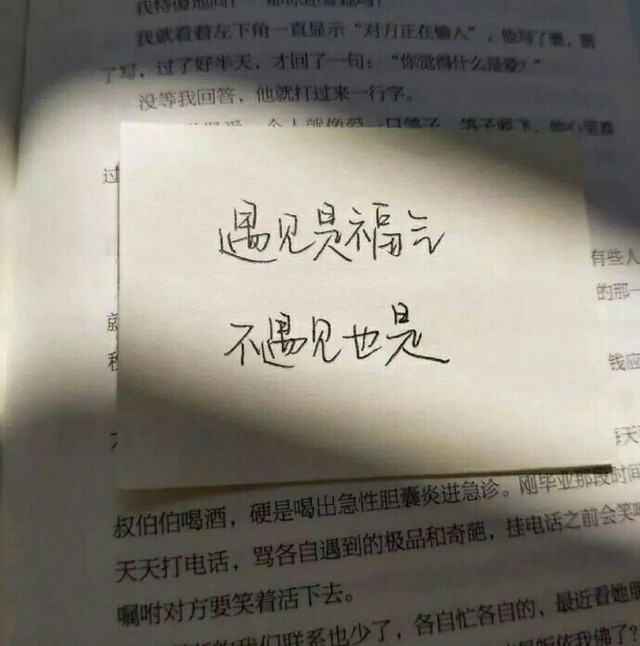 我就看着左下角一直显示“对方正在输入”，他写了删，删
了写，过了好半天，才回了一句：“你觉得什么是爱？”
没等我回答，他就打过来一行字。
过
遇见是福气
有些人
的那一
不遇见也是
就
钱应
叔伯伯喝酒，硬是喝出急性胆囊炎进急诊。刚毕业那段时间
天天打电话，骂各自遇到的极品和奇葩，挂电话之前会笑
嘱咐对方要笑着活下去。
我们联系也少了，各自忙各自的，最近看她